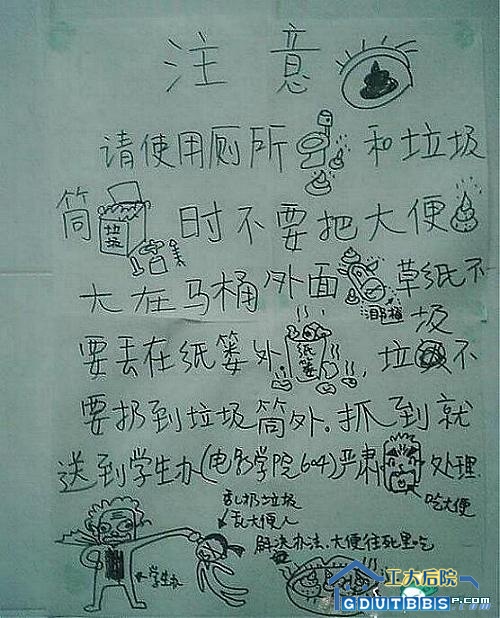 注意
请使用厕所和垃圾
筒时不要把大便
垃圾
大在马桶外面草纸不
要丢在纸篓外，垃圾不
纸篓
要扔到垃圾筒外.抓到就
送到学生办(电影学院604)严肃处理
吃大便
乱扔垃圾
乱大便人
解决办法、大便往死里吃
学生办
工大后院
GDUTBBSP.com